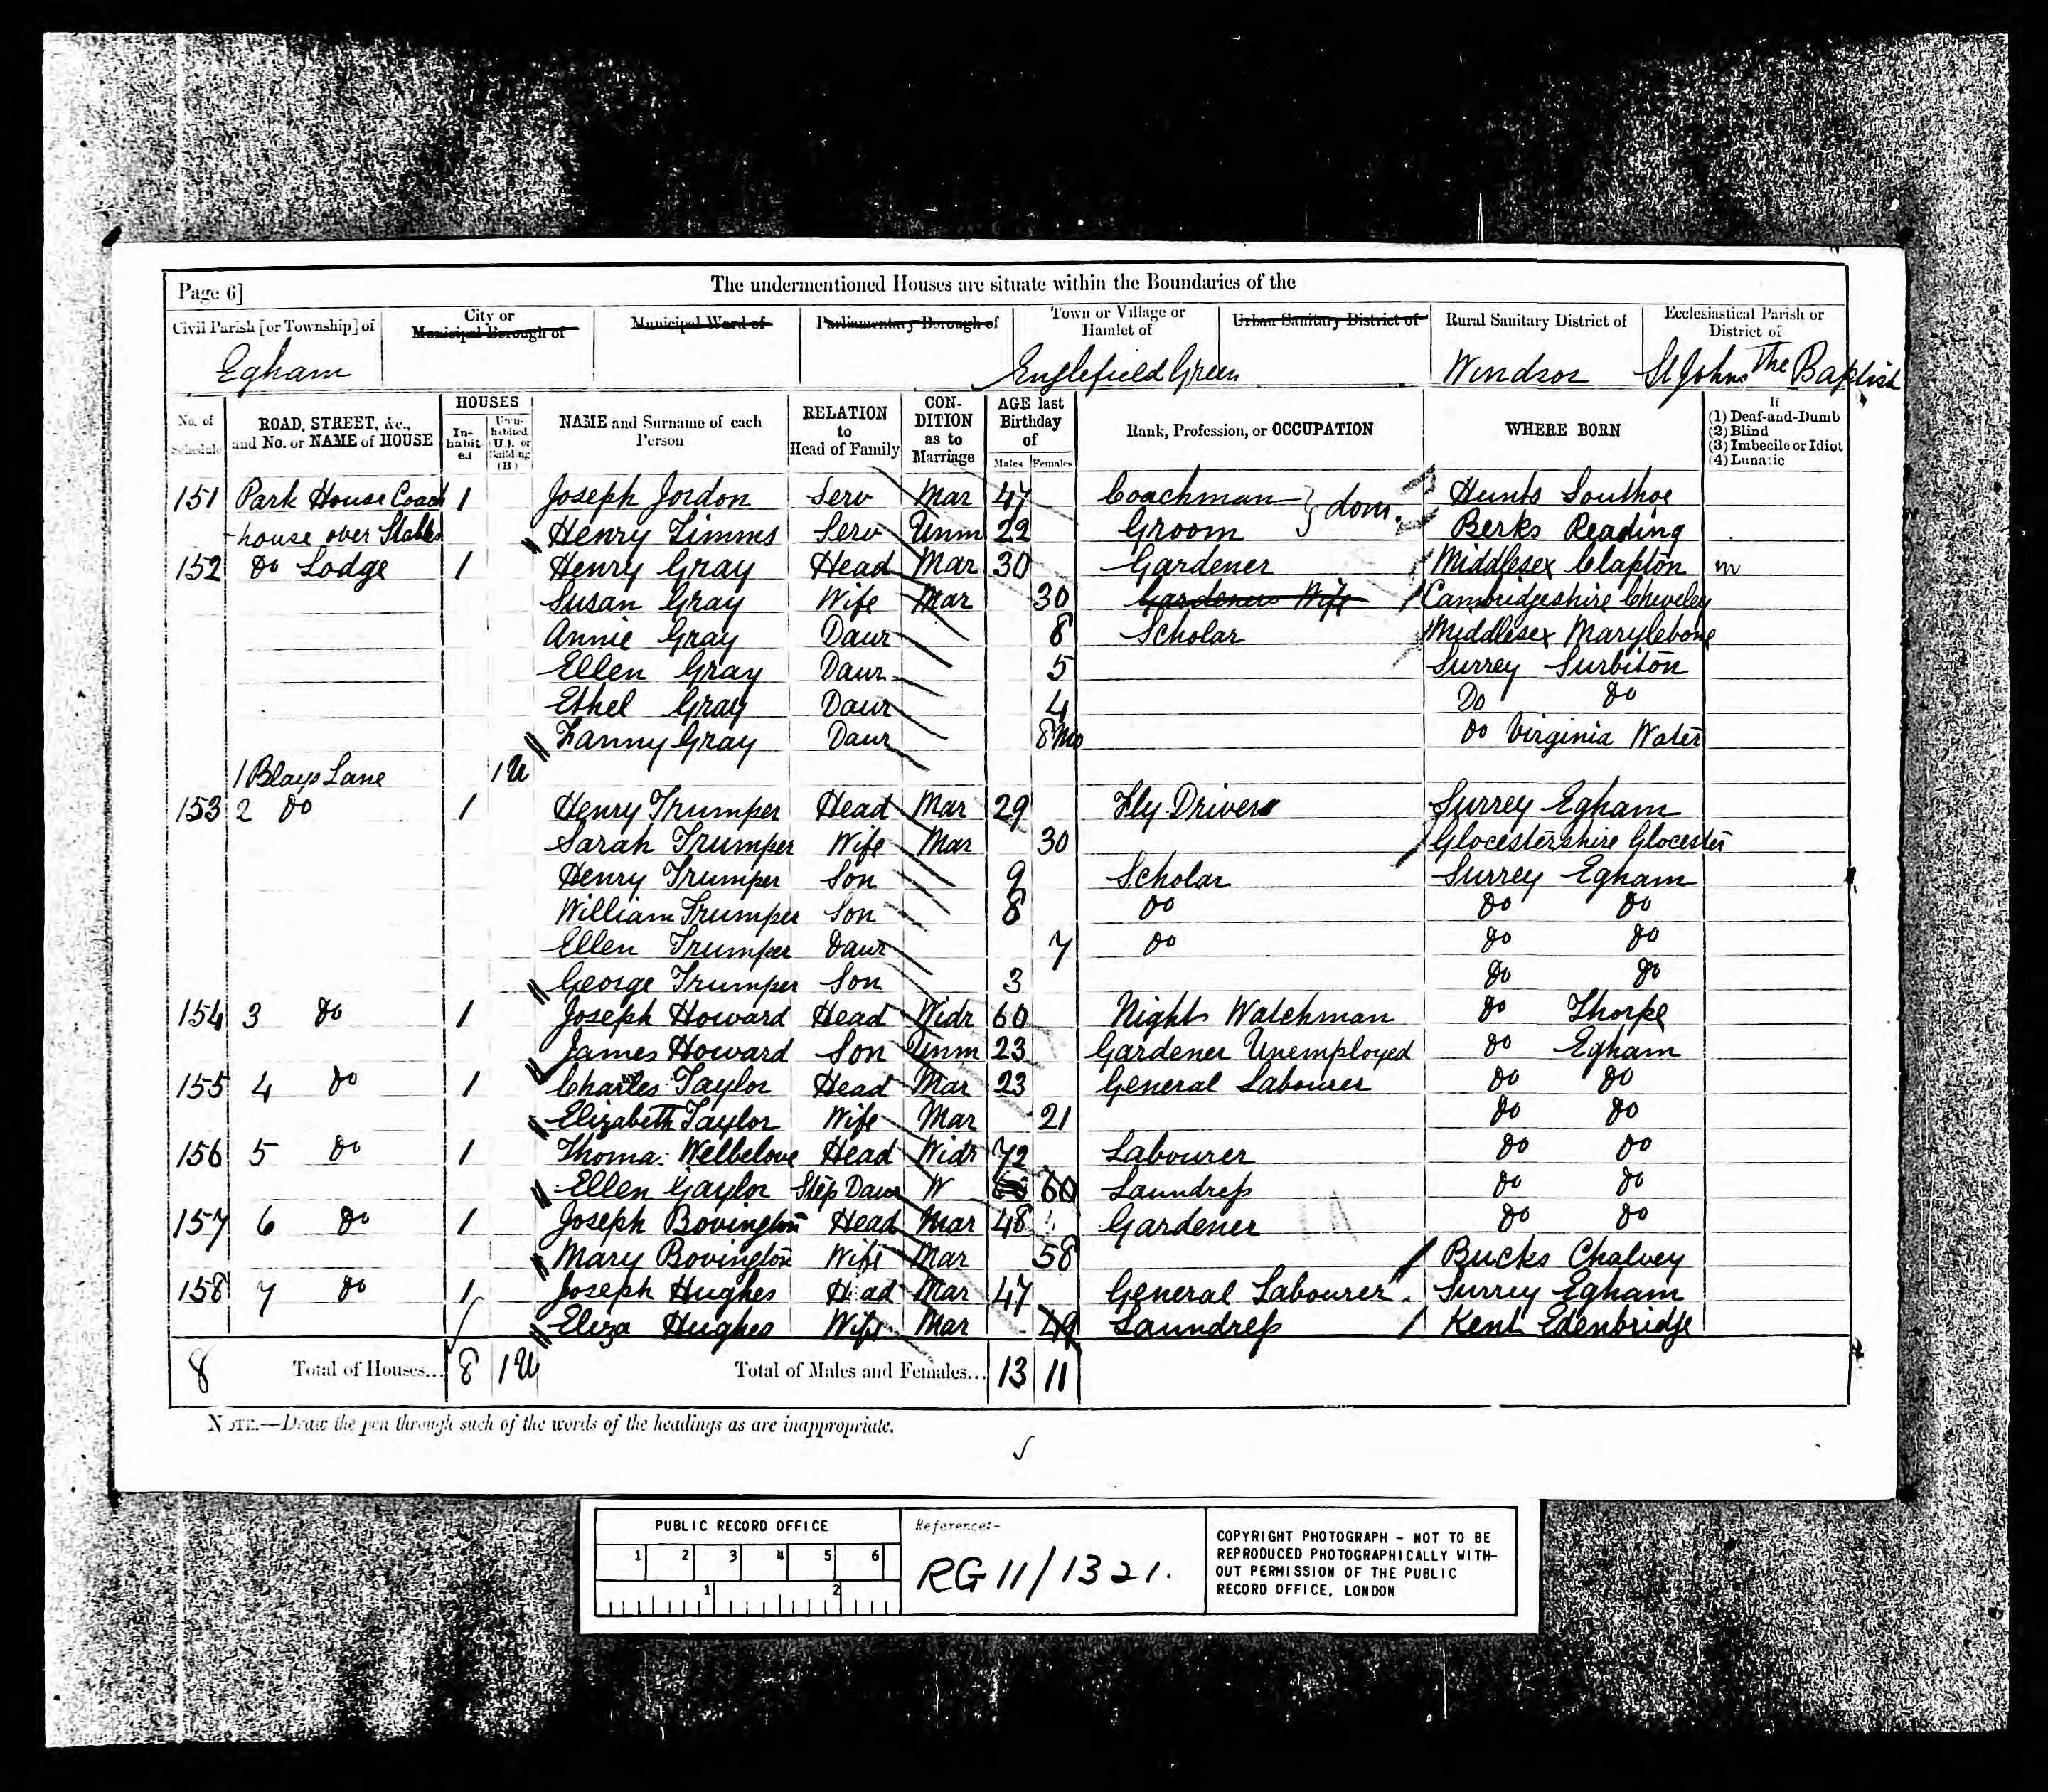 Page 6] The undermentioned Houses are situate within the Boundaries of the
Civil Parish [or Township] of City or Municipal Borough of Municipal Ward of Parliamentary Borough of Town or Village or Hamlet of Urban Sanitary District of Rural Sanitary District of Ecclesiastical Parish or District of
Egham Englefield Green Windsor St Johns The Baptist
No. of Schedule ROAD, STREET, &c., and No. or NAME of HOUSE HOUSES In-habit-ed Unin-habited (U.), or Building (B) NAME and Surname of each Person RELATION to Head of Family CON-DITION as to Marriage AGE last Birthday of Males Females Rank, Profession, or OCCUPATION WHERE BORN If (1) Deaf-and-Dumb (2) Blind (3) Imbecile or Idiot (4) Lunatic
151 Park House Coach 1 Joseph Jordon Serv Mar 47 Coachman } dom. Hunts Southoe
house over Stables Henry Timms Serv Unm 22 Groom Berks Reading
152 Do Lodge 1 Henry Gray Head Mar 30 Gardener Middlesex Clapton
Susan Gray Wife Mar 30 Gardeners Wife Cambridgeshire Cheveley
Annie Gray Daur 8 Scholar Middlesex Marylebone
Ellen Gray Daur 5 Surrey Surbiton
Ethel Gray Daur 4 Do Do
Fanny Gray Daur 8 Mo Do Virginia Water
1 Blays Lane 1 U
153 2 Do 1 Henry Trumper Head Mar 29 Fly Driver Surrey Egham
Sarah Trumper Wife Mar 30 Glocestershire Glocester
Henry Trumper Son 9 Scholar Surrey Egham
William Trumper Son 8 Do Do Do
Ellen Trumper Daur 7 Do Do Do
George Trumper Son 3 Do Do
154 3 Do 1 Joseph Howard Head Widr 60 Night Watchman Do Thorpe
James Howard Son Unm 23 Gardener Unemployed Do Egham
155 4 Do 1 Charles Taylor Head Mar 23 General Labourer Do Do
Elizabeth Taylor Wife Mar 21 Do Do
156 5 Do 1 Thomas Welbelove Head Widr 72 Labourer Do Do
Ellen Gaylor Step Daur W 60 Laundress Do Do
157 6 Do 1 Joseph Bovington Head Mar 48 Gardener Do Do
Mary Bovington Wife Mar 58 Bucks Chalvey
158 7 Do 1 Joseph Hughes Head Mar 47 General Labourer Surrey Egham
Eliza Hughes Wife Mar 49 Laundress Kent Edenbridge
8 Total of Houses... 8 1 U Total of Males and Females... 13 11
NOTE.—Draw the pen through such of the words of the headings as are inappropriate.
PUBLIC RECORD OFFICE
1 2 3 4 5 6
1 2
Reference:-
RG 11/1321.
COPYRIGHT PHOTOGRAPH - NOT TO BE
REPRODUCED PHOTOGRAPHICALLY WITH-
OUT PERMISSION OF THE PUBLIC
RECORD OFFICE, LONDON